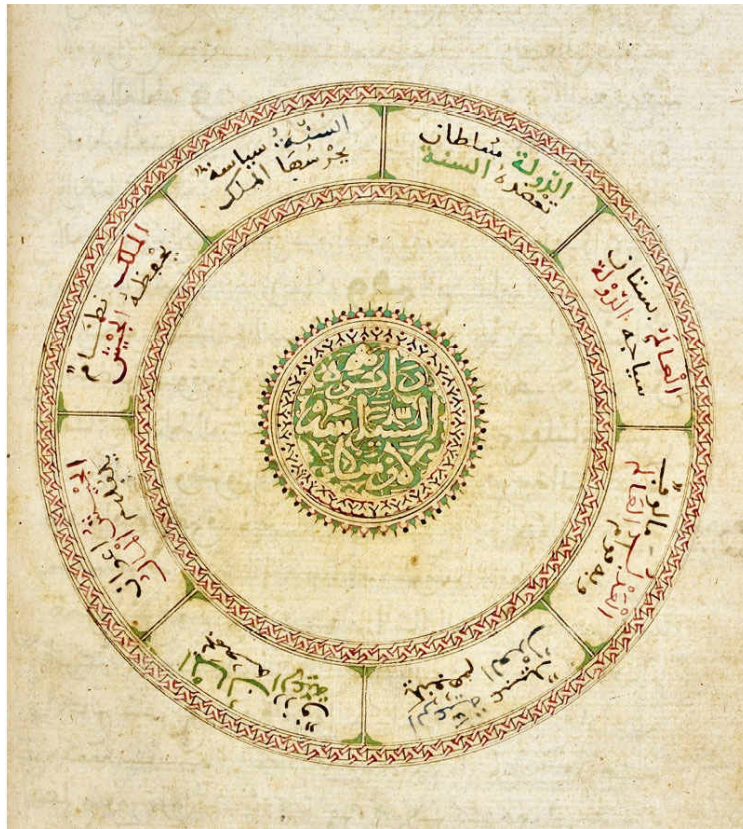 دائرة
السياسة
العالم بستان
سياجه الدولة
الدولة سلطان
تعضده السنة
السنة سياسة
يحرسها الملك
الملك نظام
يحفظه الجيش
الجيش اعوان
يكفلهم المال
المال رزق
تجمعه الرعية
الرعية عبيد
العدل
العدل مالوف
وبه قوام العالم